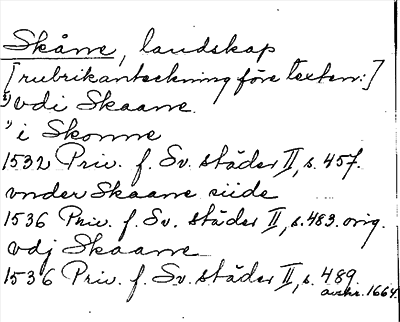 Skåne, landskap
[rubrikanteckning före texten:]
vdi Skaane.
" i Skonne
1532 Priv. f. Sv. städer II, s. 457.
vnder Skaane siide
1536 Priv. f. Sv. städer II, s. 483. orig.
vdj Skaane
1536 Priv. f. Sv. städer II, s. 489
avskr. 1664.